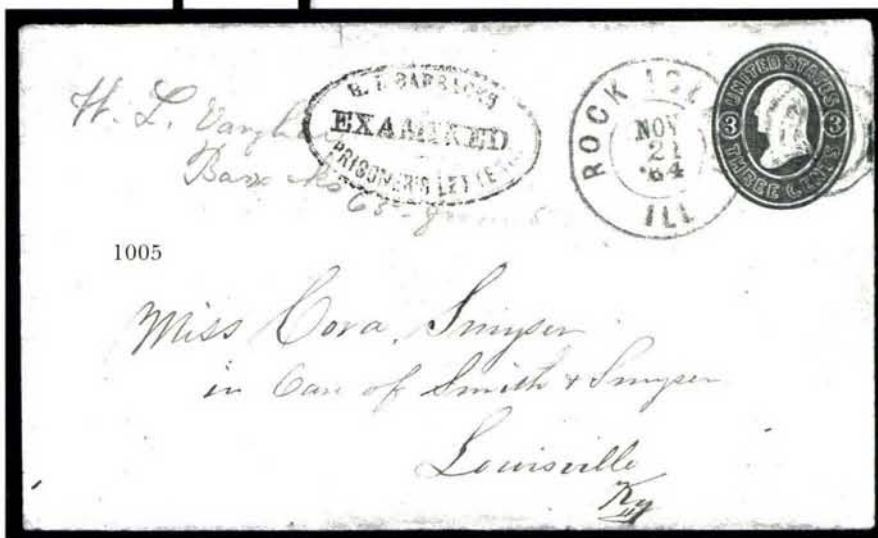 W. L. Vaughn
Barracks 63
R. I. BARRACKS
EXAMINED
PRISONER'S LETTER
ROCK ISL
NOV
21
'64
ILL
UNITED STATES
3 3
THREE CENTS
1005
Miss Cora, Smyser
in Care of Smith & Smyser
Louisville
Ky